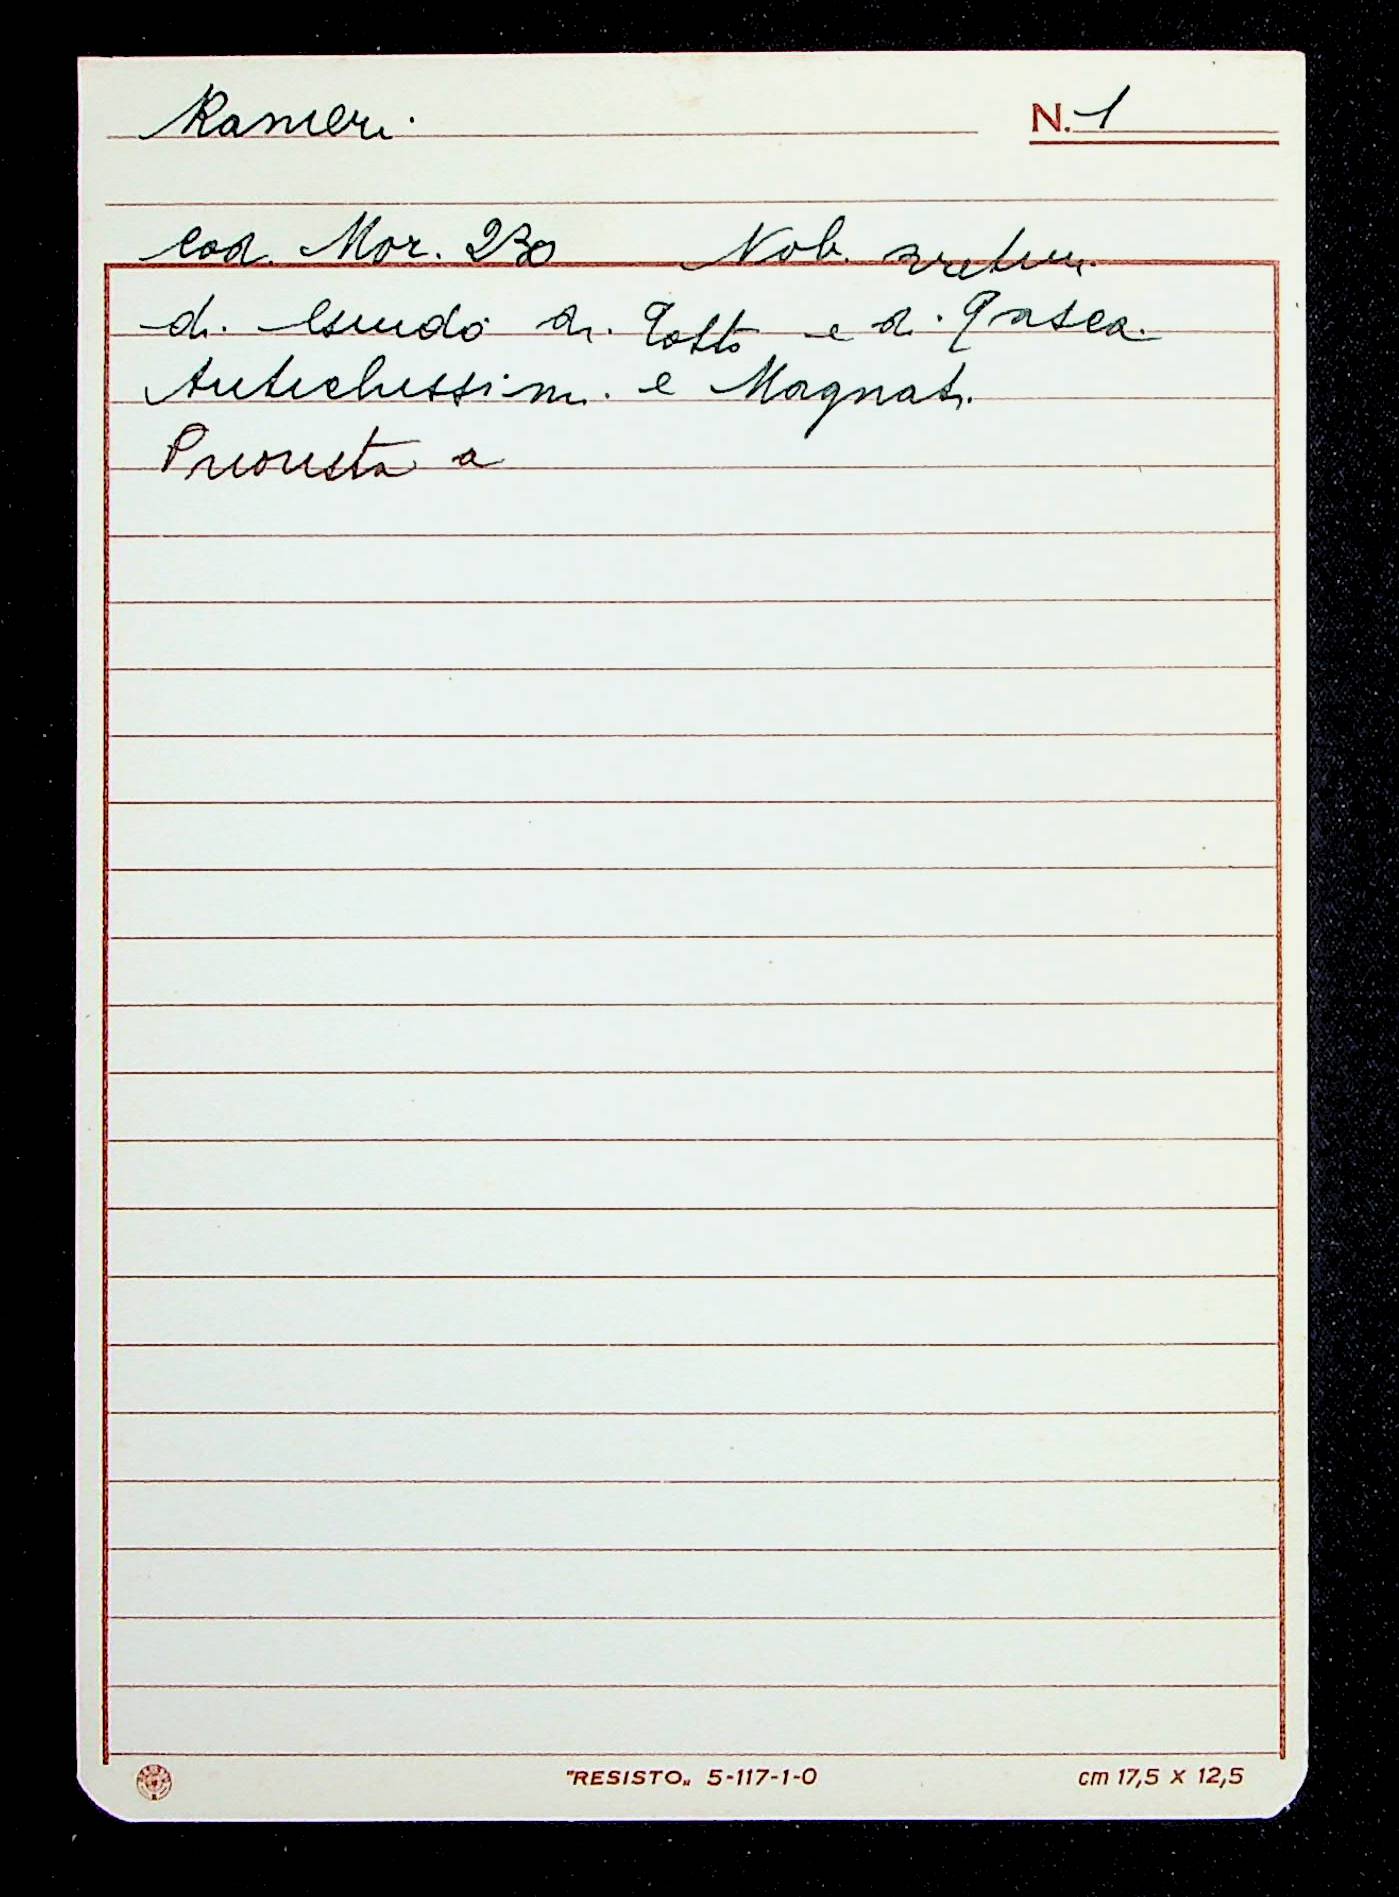 Ranieri.
N. 1
cod. Mor. 230 Nob. aretini
di di Totto e di Tasca.
Antichissimi. e Magnati.
Priorista a
"RESISTO„ 5-117-1-0
cm 17,5 x 12,5